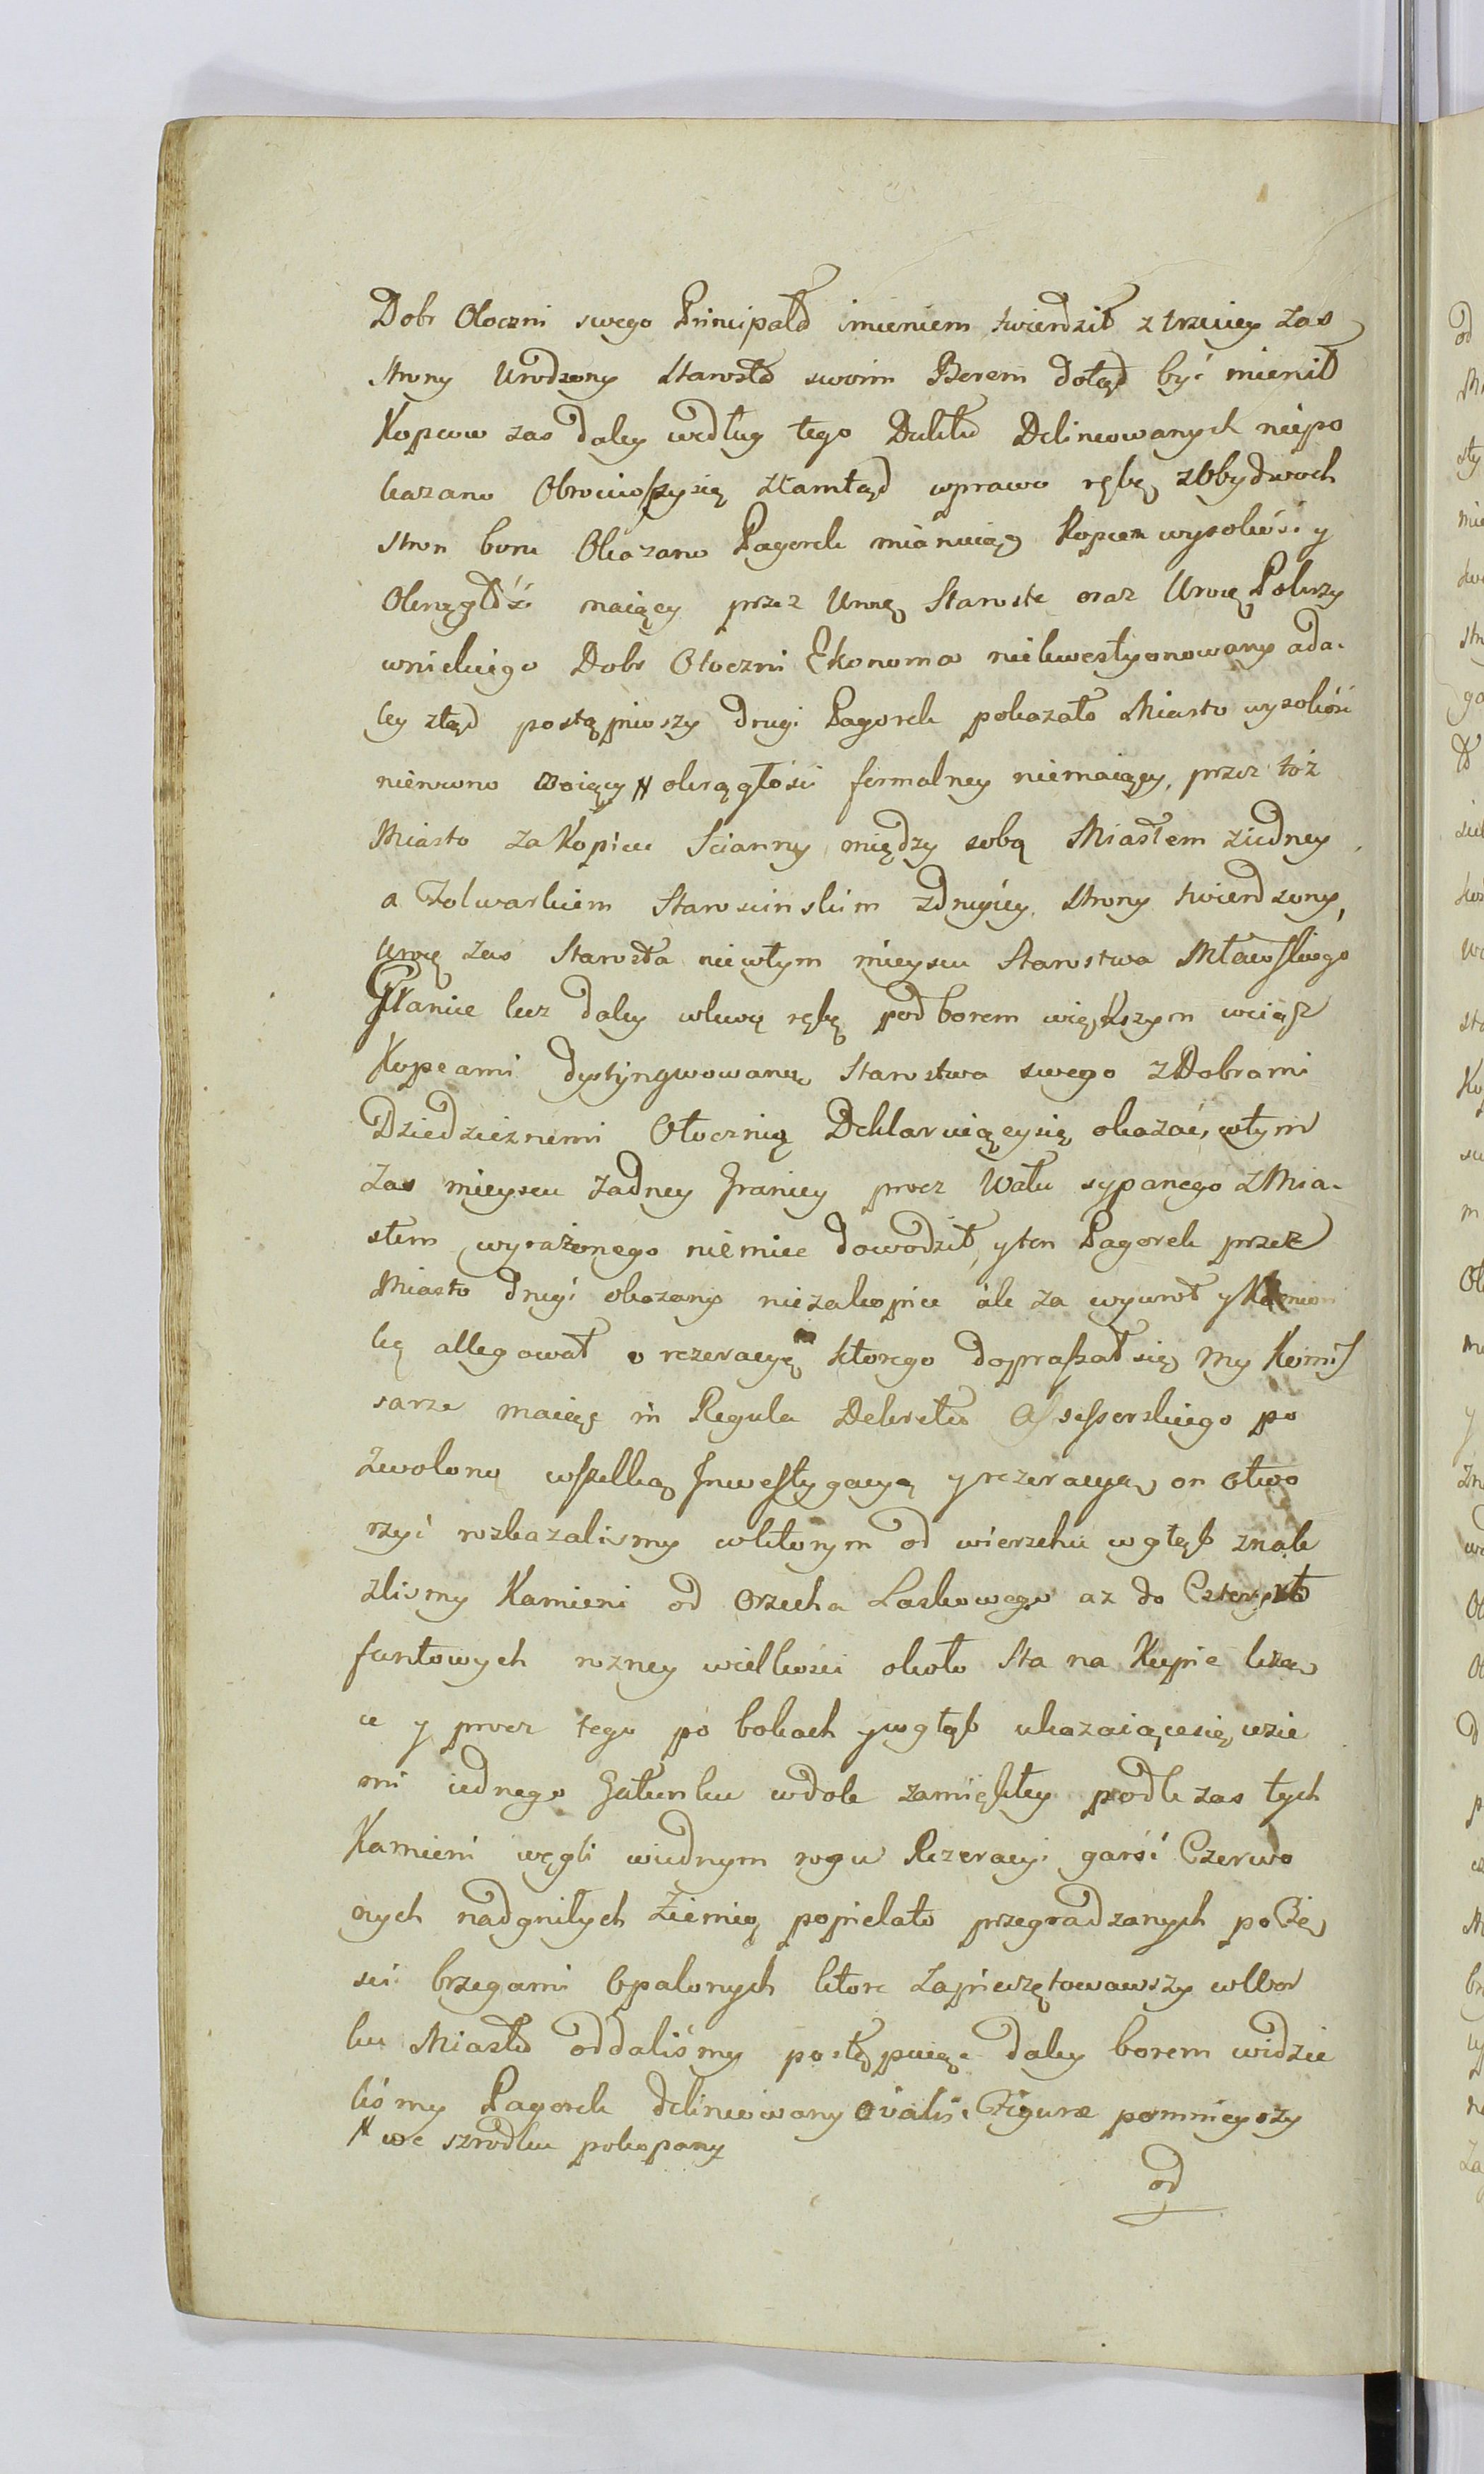 Dobr Otoczni swego Principała imieniem twierdził z trzeciey zas
strony Urodzony Starosta swoim Borem dotąd być mienił
Kopcow zas daley według tego Duktu Delineowanych niepo
kazano Obrociwszy się ztamtąd wprawo rękę z Obydwoch
stron boru Okazano Pagorek mianuiąc Kopiec wysokość y
Okrągłość maiący przez Urożę Staroste oraz Urożę Pokrzy
wnickiego Dobr Otoczni Ekonoma niekwestyonowany a da-
ley ztąd postąpiwszy drugi Pagorek pokazało Miasto wysokość
nierowno maiący # okrągłości formalney niemaiący, przez toż
Miasto za Kopiec Scianny między sobą Miastem ziedney
a Folwarkiem Staroscinskim zdrugiey strony twierdzony,
Urożę zas Starosta niewtym mieyscu Starostwa Mławskiego
Granice lecz daley wlewą rękę pod borem większym wciąsz
Kopcami dystyngwowaną Starostwa swego z Dobrami
Dziedzicznemi Otocznią Deklaruiącysię okazać, wtym
zas mieyscu żadney Granicy procz Wału sypanego z Mia-
stem wyrażonego niemiec dowodził, y ten Pagorek przez
Miasto drugi okazany niezakopiec ale za wywrot y
allegował o rezeracyą ktorego dopraszał się, my Kommis
sarze maiąc in Regula Dekretu Assessorskiego po
zwoloną wszelką Inwestygacyą y rezeracyą, on otwo
rzyć rozkazalismy wktorym od wierzchu wgłęb znale
zlismy Kamieni od Orzecha Laskowego az do
funtowych rozney wielkosci około Sta na Kupie leżą
ce y procz tego po bokach y wgłąb ukazaiącesię, wzie
mi iednego Gatunku wdole zamiękłey podle zas tych
Kamieni węgli wiednym rogu Rezeracyi garść Czerwo
nych nadgniłych Ziemią popielato przegradzanych po Czę
sci brzegami Opalonych ktore Zapieczętowawszy wWor
ku Miastu oddaliśmy postępuiąc daley borem widzie
liśmy Pagorek delineowany Ovalis Figuræ pomnieyszy
# we szrodku pokopany
od